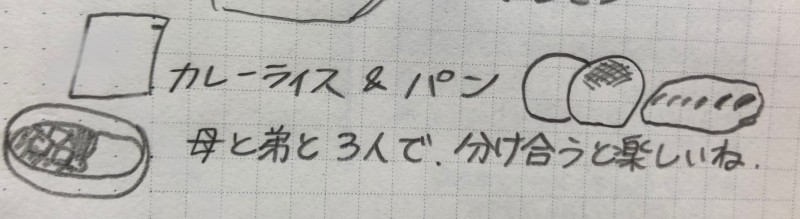 カレーライス & パン
母と弟と3人で、分け合うと楽しいね.